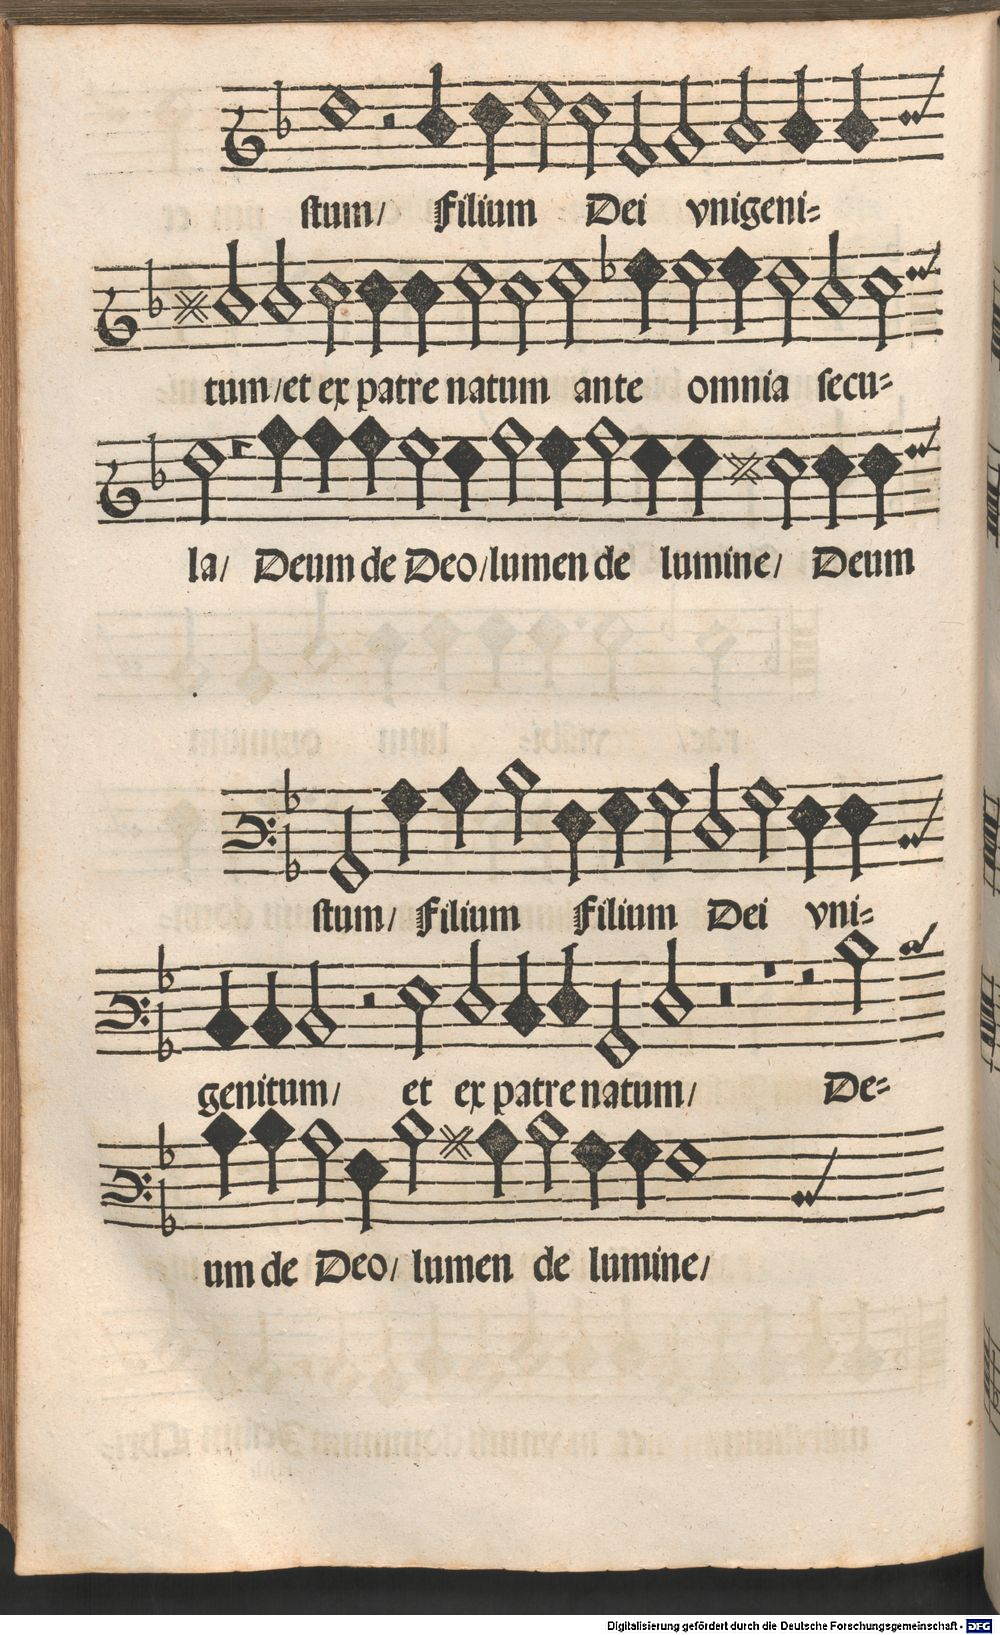 stum/ Filium Dei vnigeni=
tum/et ex patre natum ante omnia secu=
la/ Deum de Deo/lumen de lumine/ Deum
stum/ Filium Filium Dei vni=
genitum/ et ex patre natum/ De=
um de Deo/ lumen de lumine/
Digitalisierung gefördert durch die Deutsche Forschungsgemeinschaft - DFG